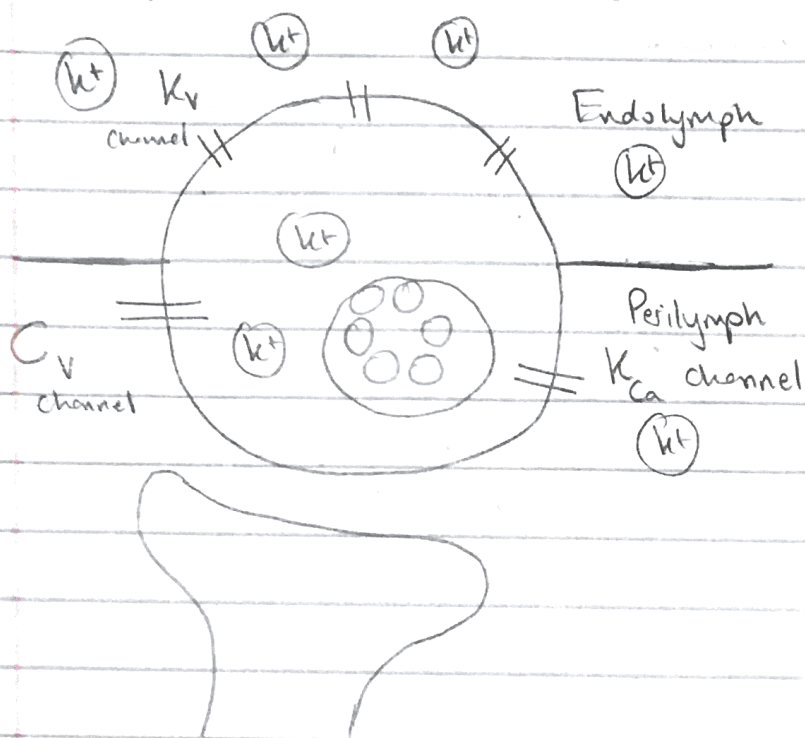 K+
K+
K+
Kv
channel
Endolymph
K+
K+
Perilymph
K+
Cv
channel
KCa channel
K+